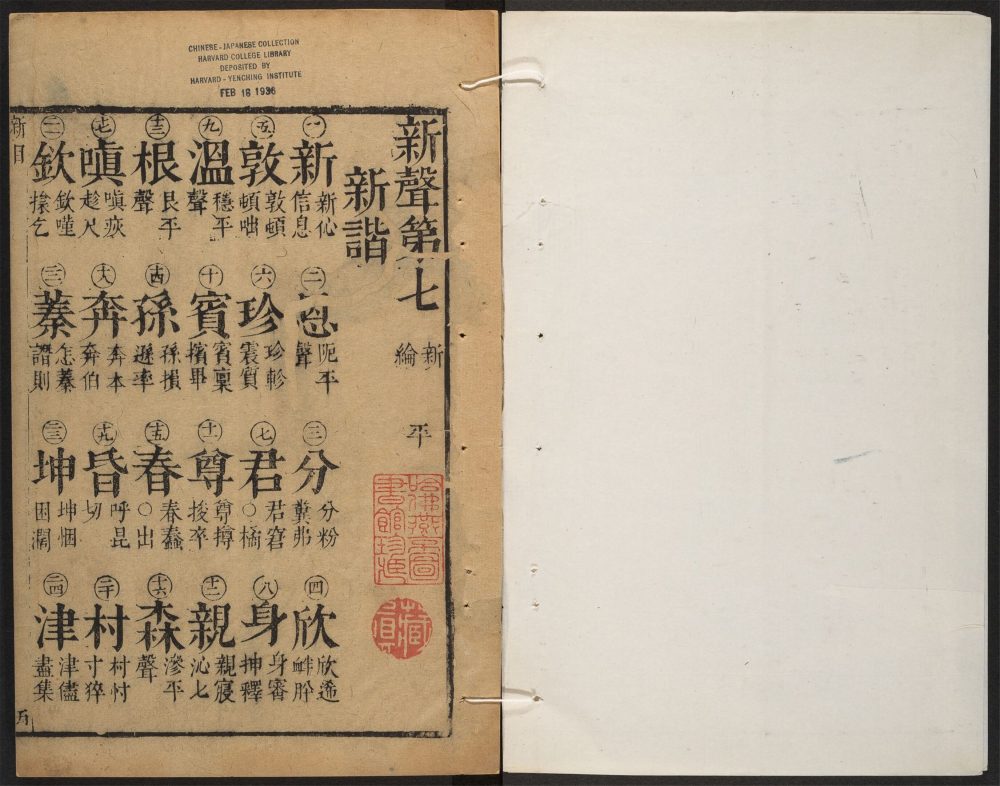 CHINESE-JAPANESE COLLECTION
HARVARD COLLEGE LIBRARY
DEPOSITED BY
HARVARD-YENCHING INSTITUTE
FEB 18 1936
新聲第七 新綸 平
新諧
一 新 新伈信息 二 恩 平聲 三 分 分粉糞弗 四 欣 欣衅肸
五 敦 敦頓頓咄 六 珍 珍軫震質 七 君 君窘○橘 八 身 身審抻釋
九 溫 穩平聲 十 賓 賓稟擯畢 十一 尊 尊撙捘卒 十二 親 親寢沁七
十三 根 艮平聲 十四 孫 孫損遜率 十五 春 春蠢○出 十六 森 滲平聲
十七 嗔 嗔疢趁尺 十八 奔 奔本奔伯 十九 昏 呼昆切 二十 村 村忖寸猝
欽 欽乞 蓁 怎蓁譖則 二三 坤 坤悃困濶 二四 津 津儘盡集
哈佛燕京圖書館珍藏